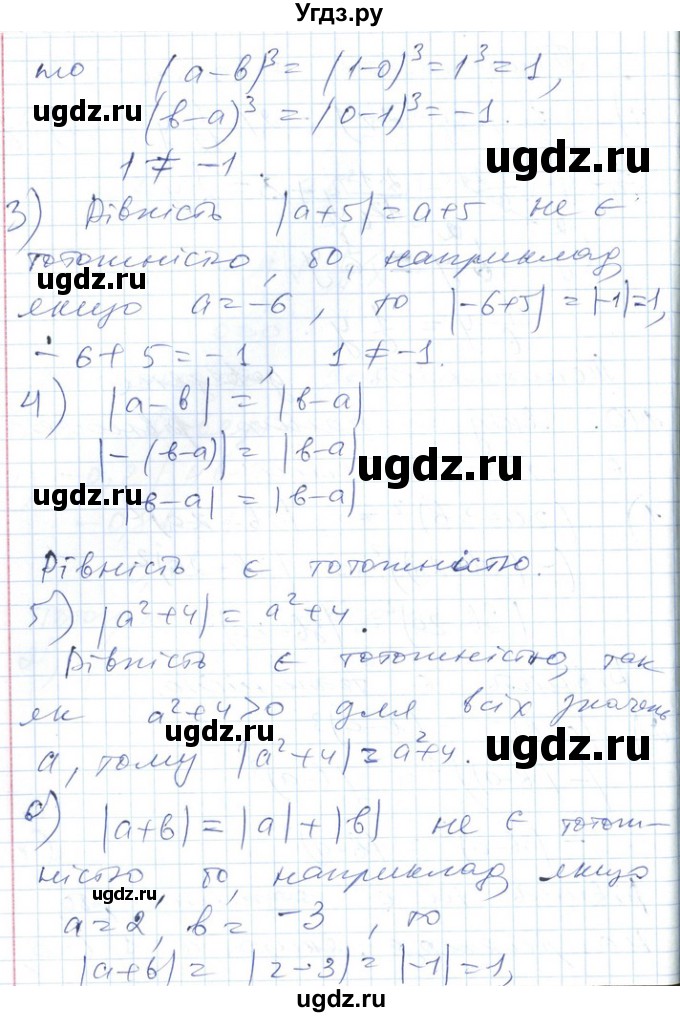 Угдз.ру
то (a-в)³ = (1-0)³ = 1³ = 1,
ugdz.ru (в-a)³ = (0-1)³ = -1.
1 ≠ -1.
ugdz.ru
3) Рівність |a+5| = a+5 не є
тотожністю, бо, наприклад,
ugdz.ru
якщо a = -6, то |-6+5| = |-1| = 1,
-6+5 = -1, 1 ≠ -1.
4) |a-в| = |в-a|
|-(в-a)| = |в-a|
ugdz.ru
|в-a| = |в-a|
ugdz.ru
Рівність є тотожністю.
5) |a²+4| = a²+4.
Рівність є тотожністю, так
як a²+4>0 для всіх значень
ugdz.ru
a, тому |a²+4| = a²+4.
ugdz.ru
6) |a+в| = |a|+|в| не є тотож-
ністю, бо, наприклад якщо
ugdz.ru
a = 2, в = -3, то
|a+в| = |2-3| = |-1| = 1,
ugdz.ru